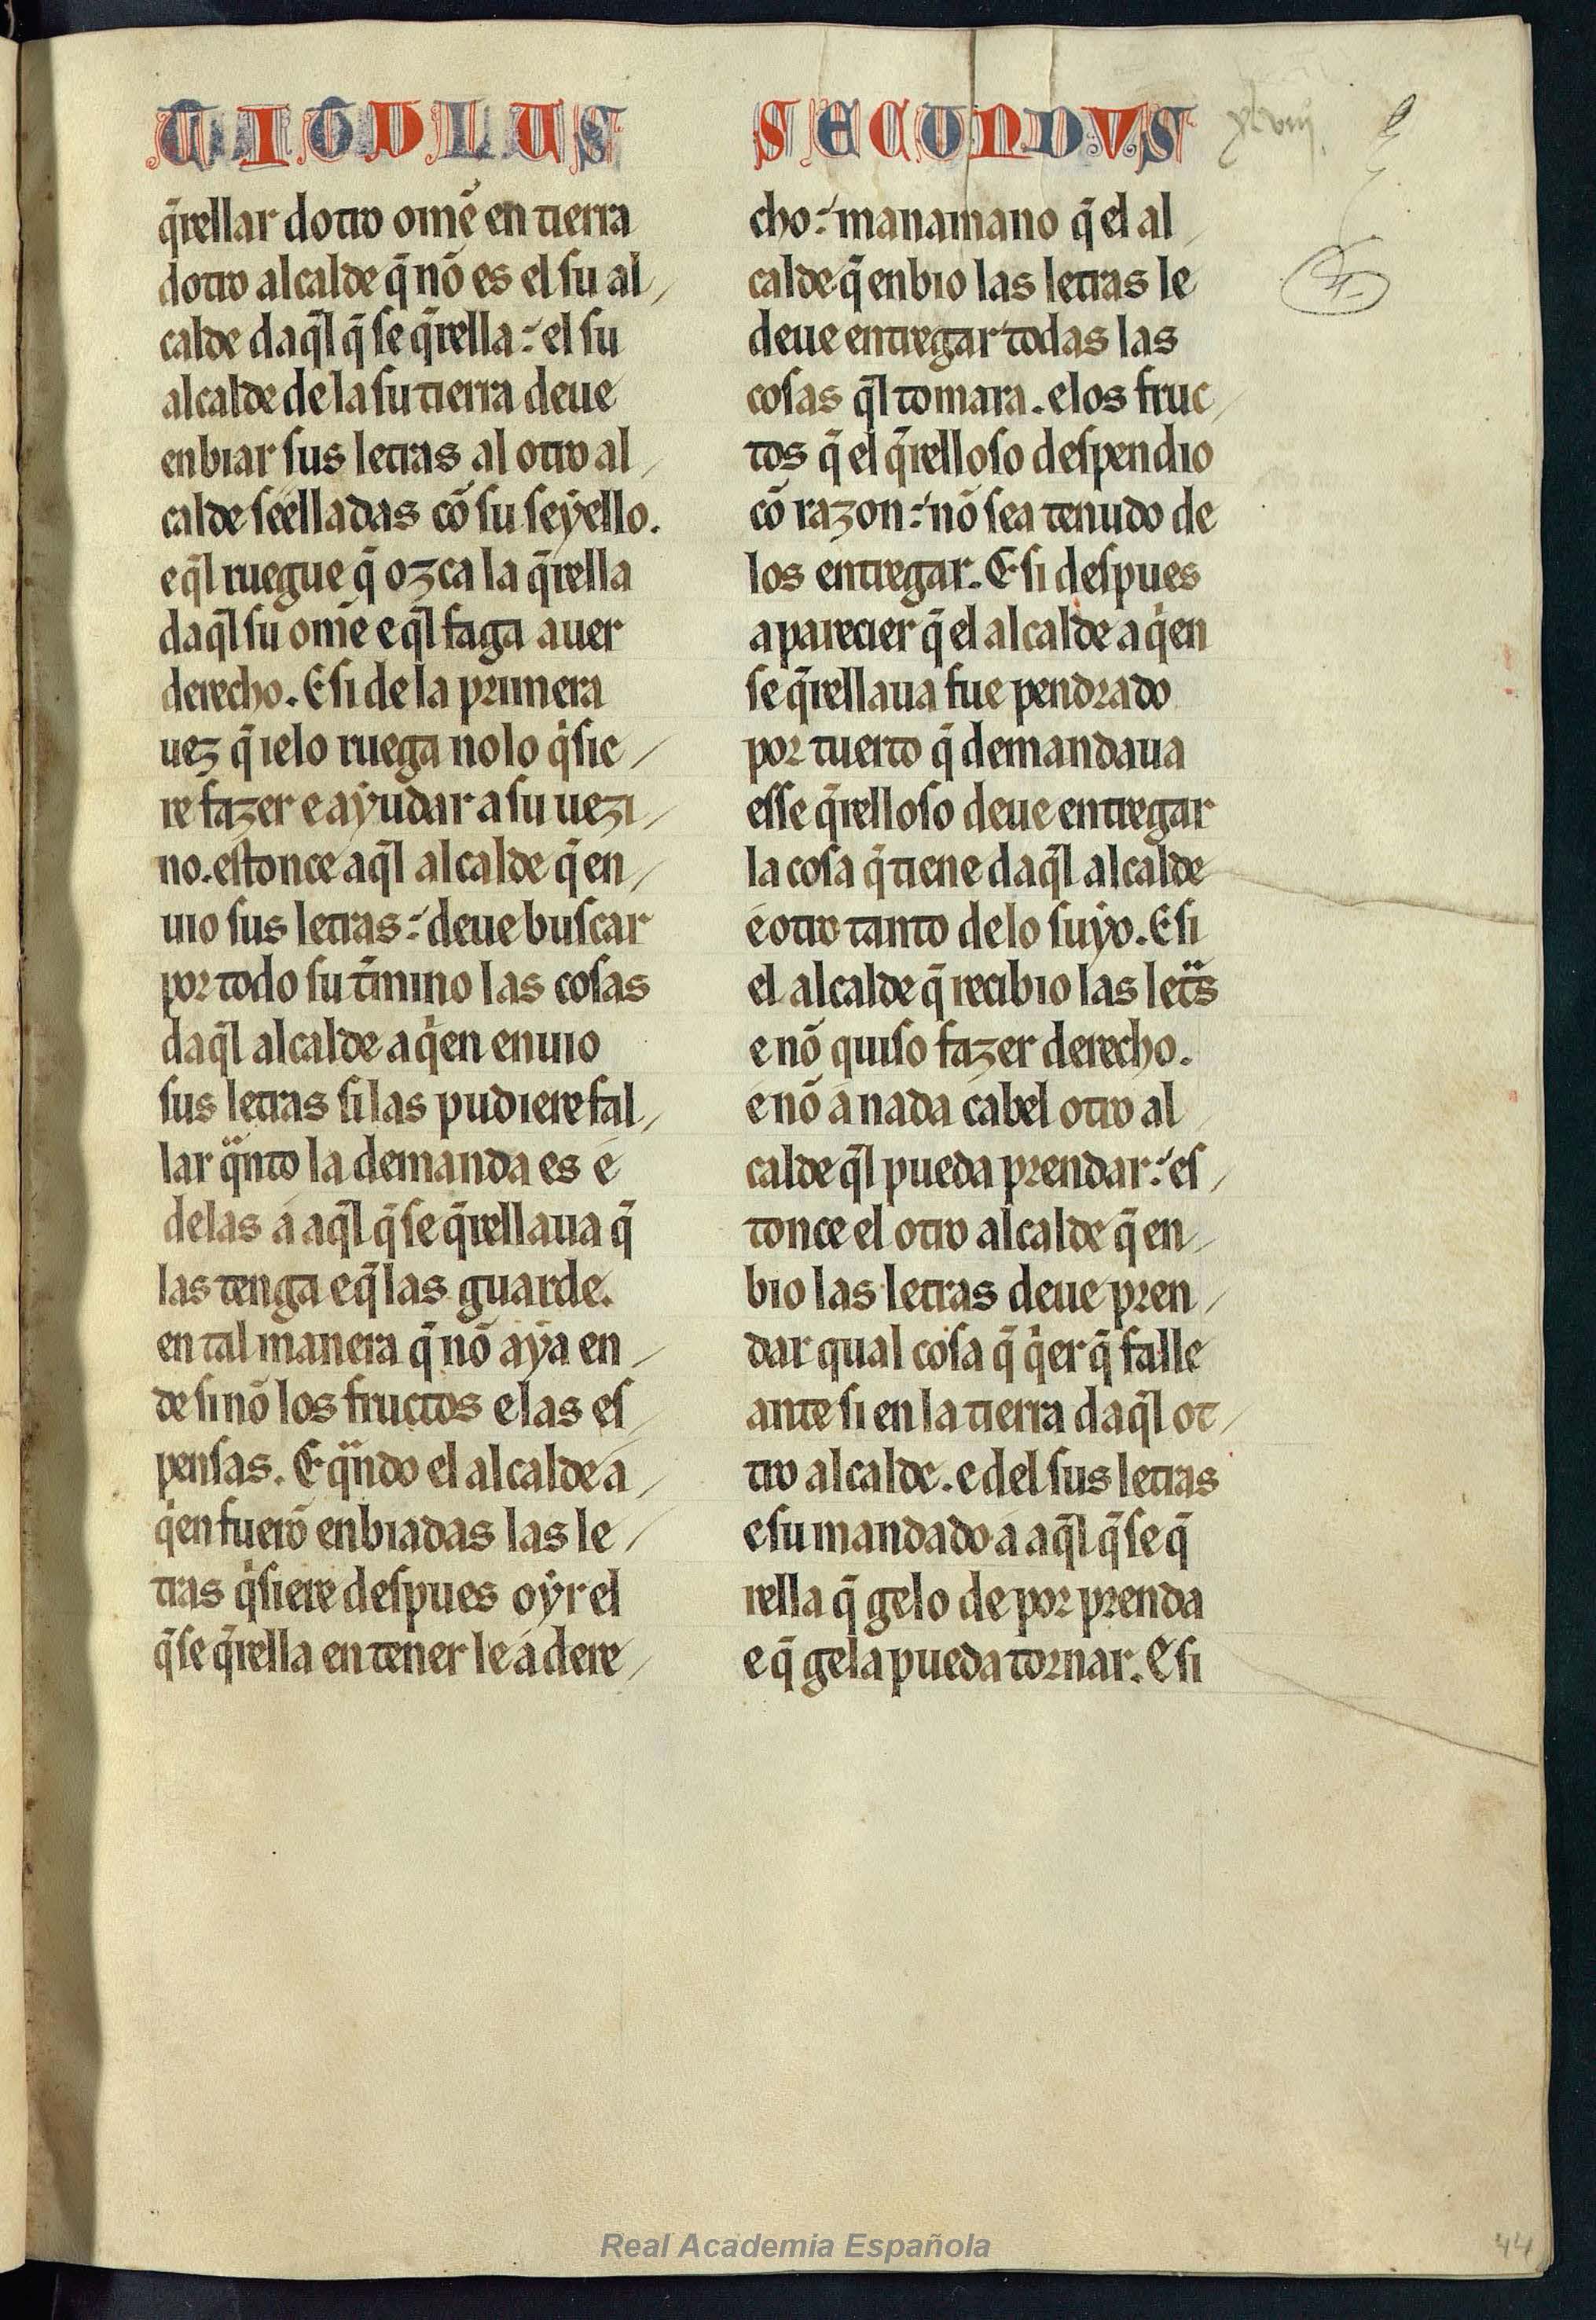 TITULUS SECUNDUS
xlviij
q̄rellar dotro omē en tierra
dotro alcalde q̄ nō es el su al/
calde daq̄l q̄ se q̄rella: el su
alcalde de la su tierra deue
enbiar sus letras al otro al/
calde seelladas cō su seẏello.
e q̄l ruegue q̄ ozca la q̄rella
daq̄l su omē e q̄l faga auer
derecho. E si de la primera
uez q̄ ielo ruega no lo q̇sie/
re fazer e aẏudar a su uezi/
no. estonce aq̄l alcalde q̄ en/
uio sus letras: deue buscar
por todo su t̄mino las cosas
daq̄l alcalde a q̇en enuio
sus letras si las pudiere fal/
lar q̈nto la demanda es e
delas a aq̄l q̄ se q̄rellaua q̄
las tenga e q̄ las guarde.
en tal manera q̄ nō aẏa en/
de si nō los fructos e las es/
pensas. E q̈ndo el alcalde a/
q̇en fuerō enbiadas las le/
tras q̇siere despues oẏr el
q̄ se q̄rella en tener le a dere/
cho: manamano q̄ el al/
calde q̄ enbio las letras le
deue entregar todas las
cosas q̄l tomara. e los fruc/
tos q̄ el q̄relloso despendio
cō razon: nō sea tenudo de
los entregar. E si despues
aparecier q̄ el alcalde a q̇en
se q̄rellaua fue pendrado
por tuerto q̄ demandaua
esse q̄relloso deue entregar
la cosa q̄ tiene daq̄l alcalde
e otro tanto de lo suẏo. E si
el alcalde q̄ recibio las leẗs
e nō quiso fazer derecho.
e nō a nada cabel otro al/
calde q̄l pueda prendar: es/
tonce el otro alcalde q̄ en/
bio las letras deue pren/
dar qual cosa q̄ q̇er q̄ falle
ante si en la tierra daq̄l ot/
tro alcalde. e del sus letras
e su mandado a aq̄l q̄ se q̄
rella q̄ gelo de por prenda
e q̄ gela pueda tornar. E si
Real Academia Española
44